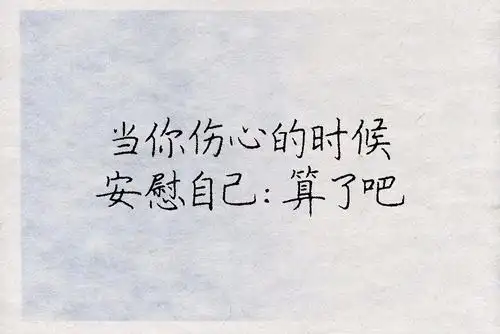 当你伤心的时候
安慰自己:算了吧